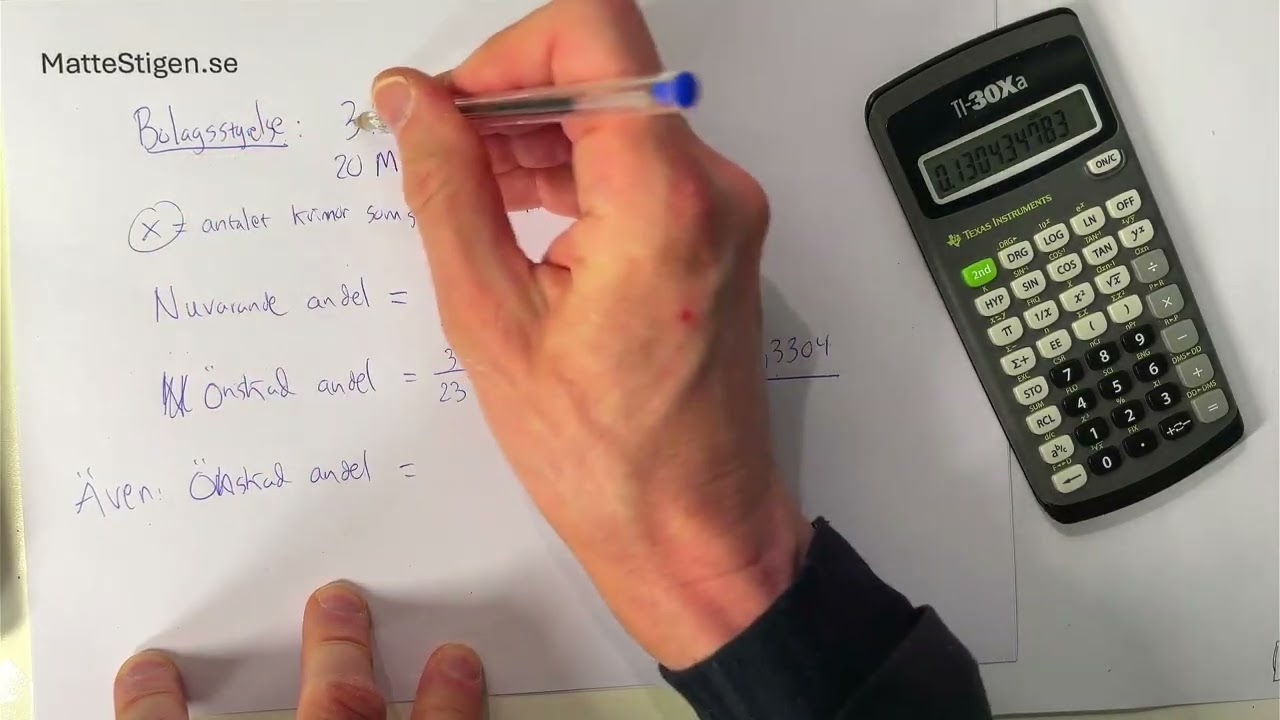 MatteStigen.se
Bolagsstyrelse: 3
20 M
x = antalet kvinnor som s
Nuvarande andel =
Önskad andel = 3/23 ,3304
Även: Önskad andel =
TI-30Xa
0.130434783
TEXAS INSTRUMENTS
ON/C
2nd DRG LOG LN OFF
HYP SIN COS TAN yx
π 1/x x² √x ÷
Σ+ EE ( ) ×
STO 7 8 9 −
RCL 4 5 6 +
ab/c 1 2 3 =
← 0 . +⇄−